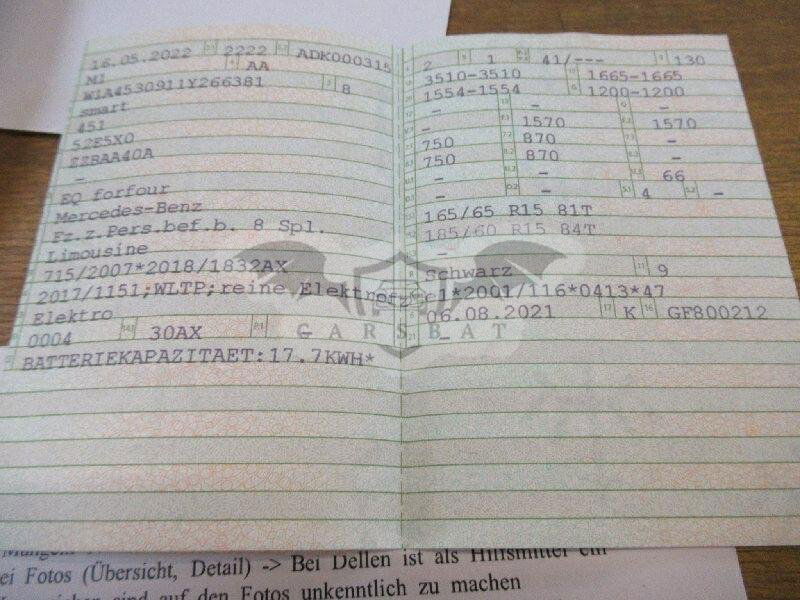 16.05.2022 2222 ADK000315
M1 AA
W1A4530911Y266381 8
smart
453
52E5X0
ZZBAA40A
-
EQ forfour
Mercedes-Benz
Fz.z.Pers.bef.b. 8 Spl.
Limousine
715/2007*2018/1832AX
2017/1151;WLTP;reine Elektrofz
Elektro
0004 30AX
BATTERIEKAPAZITAET:17.7KWH*
2 1 41/--- 130
3510-3510 1665-1665
1554-1554 1200-1200
- - -
- 1570 1570
750 870 -
750 870 -
- - 66
- - 4 -
165/65 R15 81T
185/60 R15 84T
-
Schwarz 9
e1*2001/116*0413*47
06.08.2021 K GF800212
-
CARSBAT
ei Fotos (Übersicht, Detail) -> Bei Dellen ist als Hilfsmittel ein
sind auf den Fotos unkenntlich zu machen